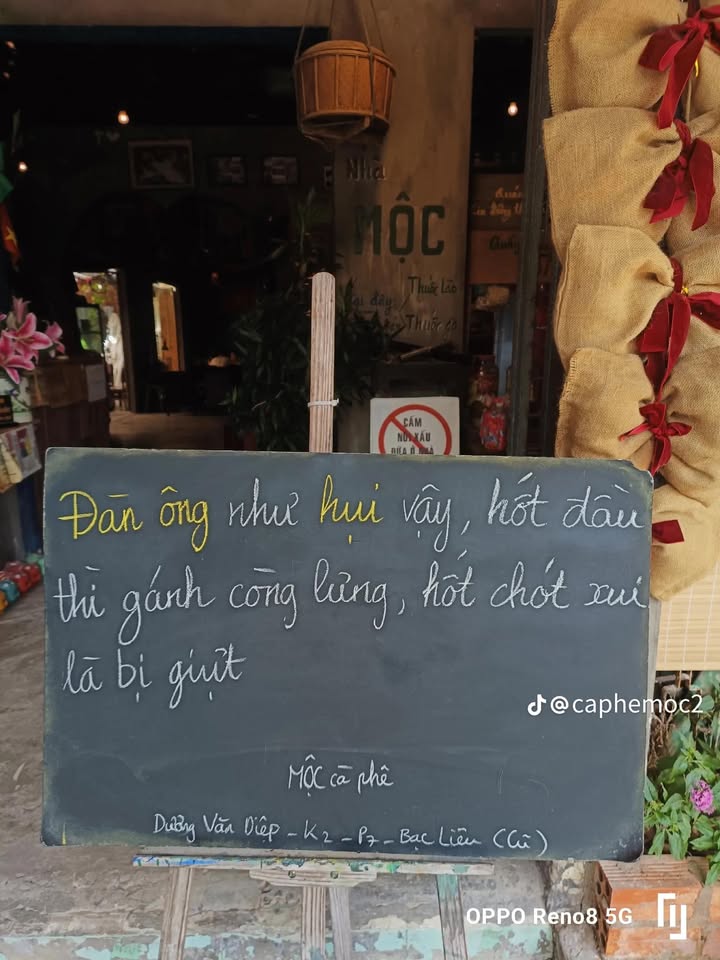 Nhà
MỘC
Thuốc Lào
Thuốc
CẤM
NÓI XẤU
Đàn ông như hụi vậy, hốt đầu
thì gánh còng lưng, hốt chót xui
là bị giựt
@caphemoc2
MỘC cà phê
Dương Văn Diệp - K2 - P7 - Bạc Liêu (Cũ)
OPPO Reno8 5G